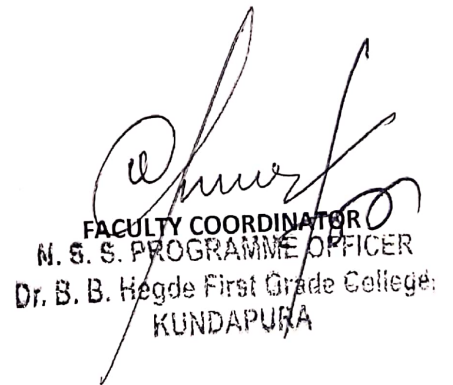 FACULTY COORDINATOR
N. S. S. PROGRAMME OFFICER
Dr. B. B. Hegde First Grade College:
KUNDAPURA